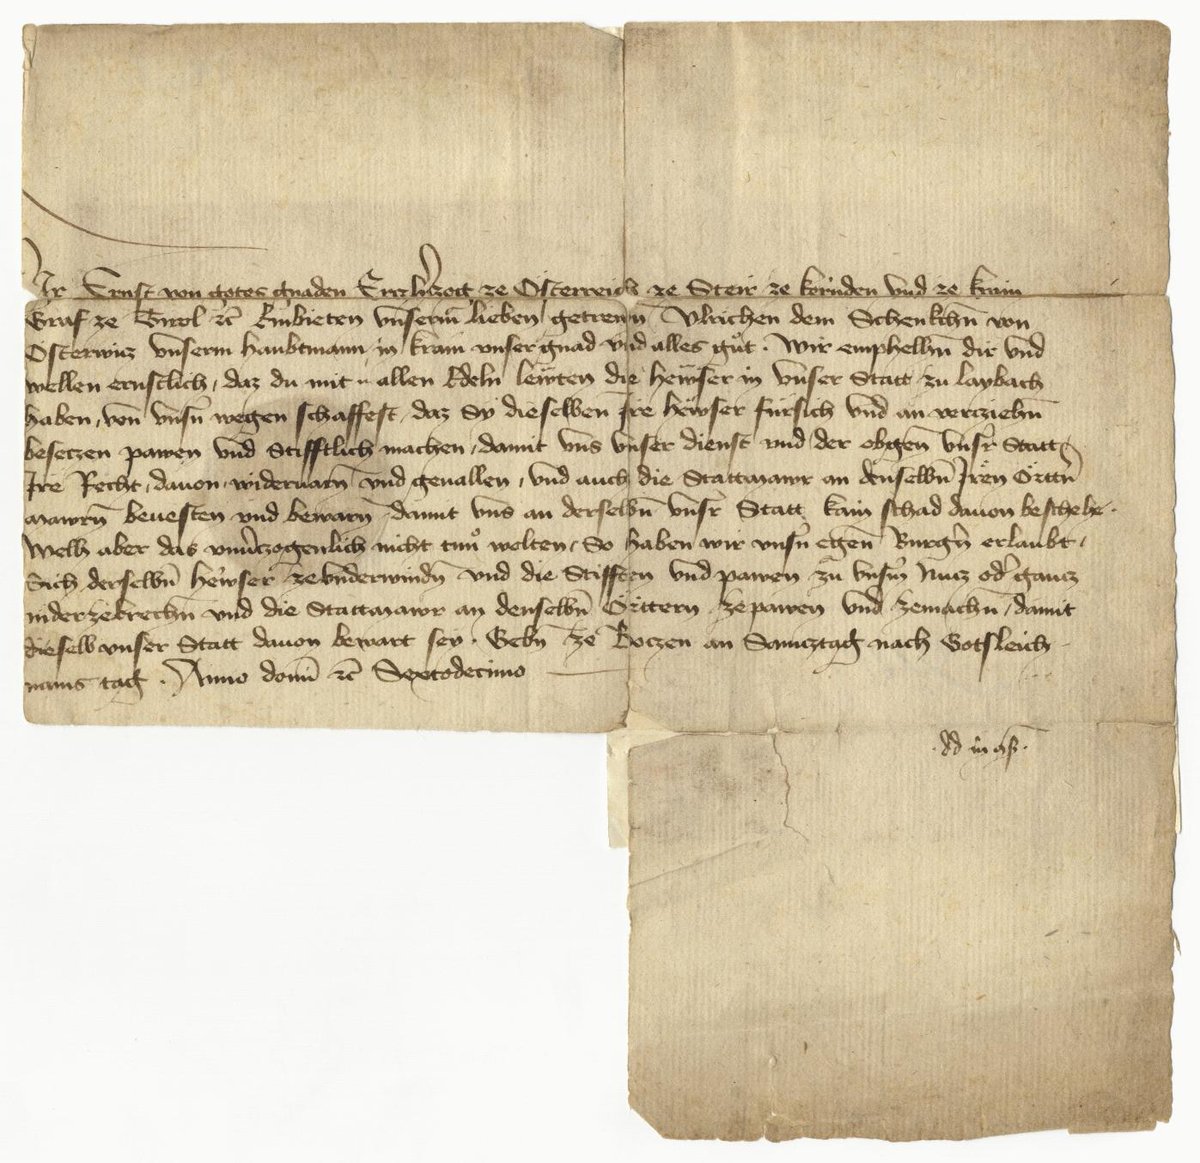 Wir Ernst von gotes gnaden Erczherczog ze Österreich ze Steir ze kernden vnd ze krain
Graf ze Tirol etc Embieten vnserm lieben getrewn Vlrichen dem Schenkchn von
Osterwicz vnserm haubtmann in krain vnser gnad vnd alles gůt. Wir emphelhen dir vnd
wellen ernstlich, daz du mit allen Edeln lewten die hewser in vnser Statt zu laybach
haben, von vnsern wegen schaffest, daz Sy dieselben Ire hewser fürslich vnd an vercziehn
besetzen pawen vnd Stifftlich machen, damit vns vnser dienst vnd der obgen vnsr Statt
Ire Recht, dauon widervarn vnd geuallen, vnd auch die Stattmawr an denselbn Iren Örttn
mawrn beuesten vnd bewarn, damit vns an derselbn vnsr Statt kain schad dauon beschehe.
Welh aber das vnuerczogenlich nicht tun wolten, So haben wir vnsern egen Burgern erlaubt,
Sich derselbn hewser ze vnderwindn vnd die Stifften vnd pawen zu vnserm Nucz oder gancz
niderzebrechn vnd die Stattmawr an denselbn Örttern ze pawen vnd zemachn, damit
dieselb vnser Statt dauon bewart sey. Gebn ze Boczen an Samcztag nach Gotsleich
nams tag. Anno domi etc Sextodecimo